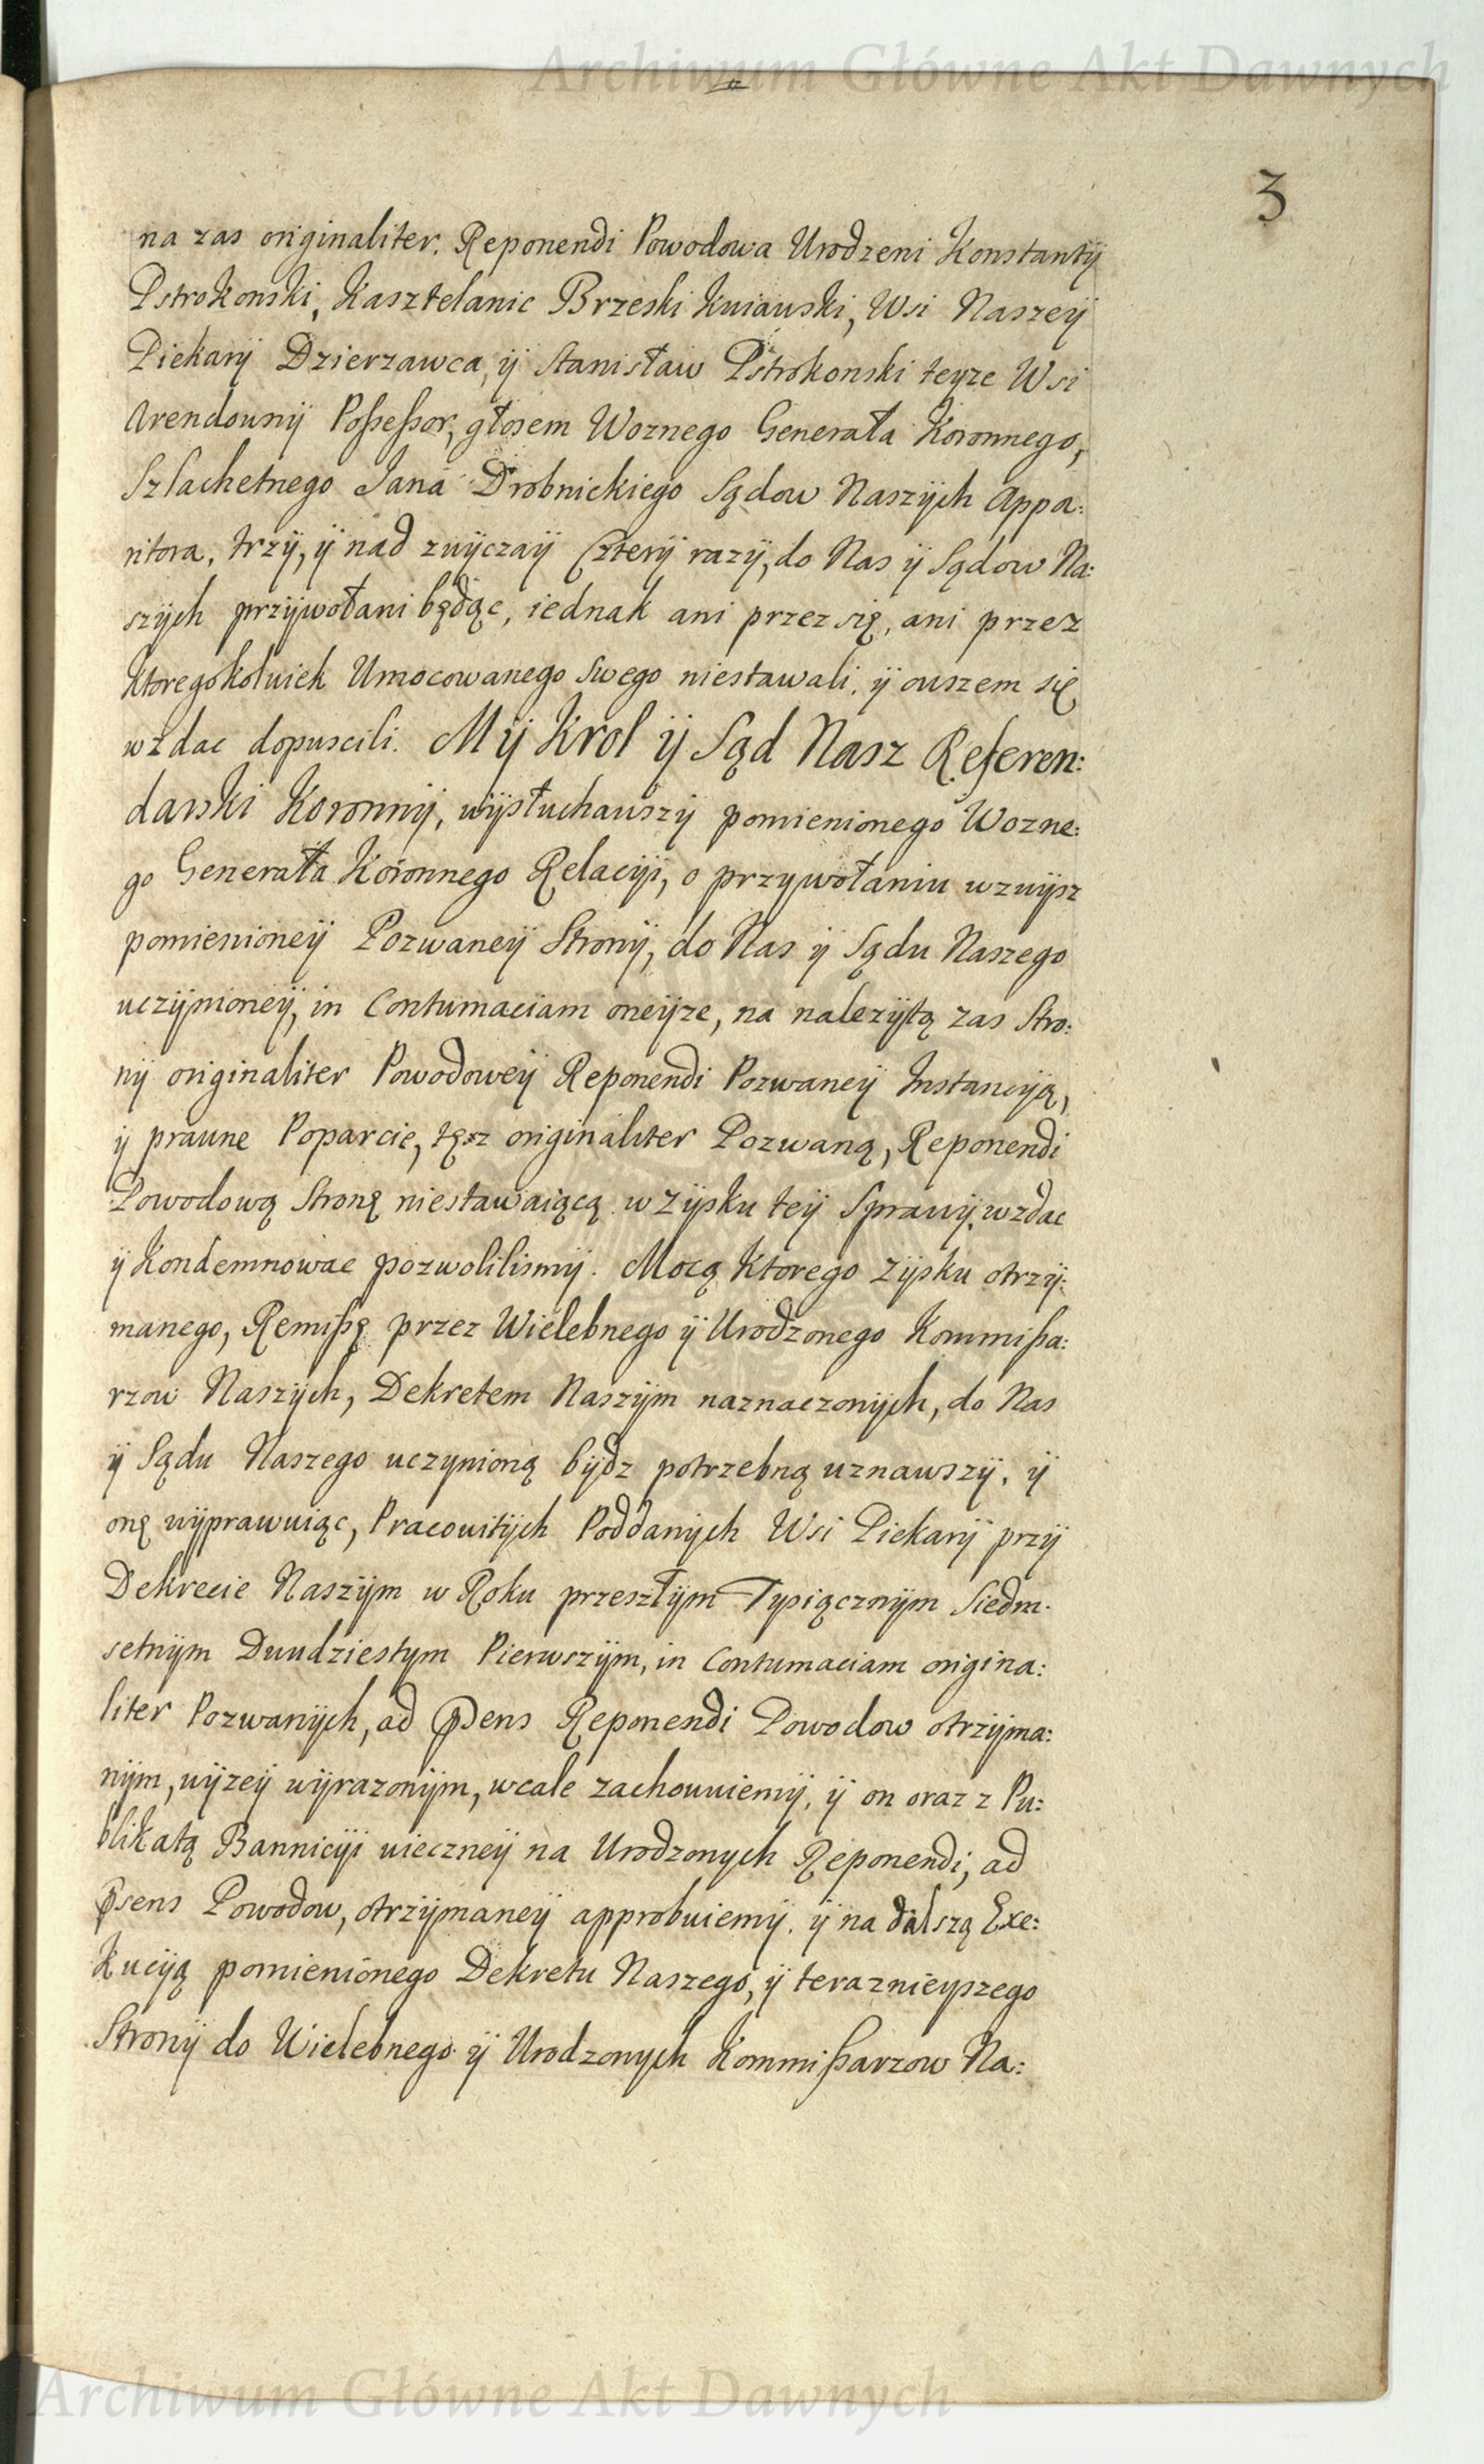 Archiwum Główne Akt Dawnych
3
na zas originaliter. Reponendi Powodowa Urodzeni Konstantÿ
Pstrokonski, Kasztelanic Brzeski Kuiawski, Wsi Naszeÿ
Piekarÿ Dzierzawca, ÿ Stanisław Pstrokonski teyze Wsi
Arendownÿ Poßeßor, głosem Woznego Generała Koronnego,
Szlachetnego Jana Drobnickiego Sądow Naszÿch Appa:
ritora, trzÿ, ÿ nad zwÿczaÿ Czterÿ razÿ, do Nas ÿ Sądow Na:
szÿch przÿwołani będąc, iednak ani przez się, ani przez
ktoregokolwiek Umocowanego swego niestawali, ÿ owszem się
wzdac dopuscili. Mÿ Krol ÿ Sąd Nasz Referen:
darski Koronnÿ, wÿsłuchawszÿ pomienionego Wozne:
go Generała Koronnego Relacÿi, o przywołaniu wzwÿsz
pomienioneÿ Pozwaneÿ Stronÿ, do Nas ÿ Sądu Naszego
uczÿnioneÿ, in Contumaciam oneÿze, na nalezÿtą zas Stro:
nÿ originaliter Powodoweÿ Reponendi Pozwaneÿ Instancÿą,
ÿ prawne Poparcie, tęsz originaliter Pozwaną, Reponendi
Powodową Stronę niestawaiącą w Zÿsku teÿ Sprawÿ, wzdac
ÿ Kondemnowac pozwolilismÿ. Mocą Ktorego Zÿsku otrzÿ:
manego, Remißę przez Wielebnego ÿ Urodzonego Kommißa:
rzow Naszÿch, Dekretem Naszÿm naznaczonÿch, do Nas
ÿ Sądu Naszego uczynioną bÿdz potrzebną uznawszÿ, ÿ
onę wÿprawuiąc, Pracowitÿch Poddanÿch Wsi Piekarÿ przÿ
Dekrecie Naszÿm w Roku przeszłÿm Tysiącznÿm Siedm.
setnÿm Dwudziestym Pierwszÿm, in Contumaciam origina:
liter Pozwanÿch, ad Psens Reponendi Powodow otrzÿma:
nÿm, wÿzeÿ wÿrazonÿm, wcale zachowuiemÿ, ÿ on oraz z Pu:
blikatą Bannicÿi wieczneÿ na Urodzonych Reponendi, ad
Psens Powodow, otrzÿmaneÿ approbuiemÿ, ÿ na dalszą Exe:
kucÿą pomienionego Dekretu Naszego, ÿ teraznieyszego
Stronÿ do Wielebnego ÿ Urodzonych Kommißarzow Na:
Archiwum Główne Akt Dawnych